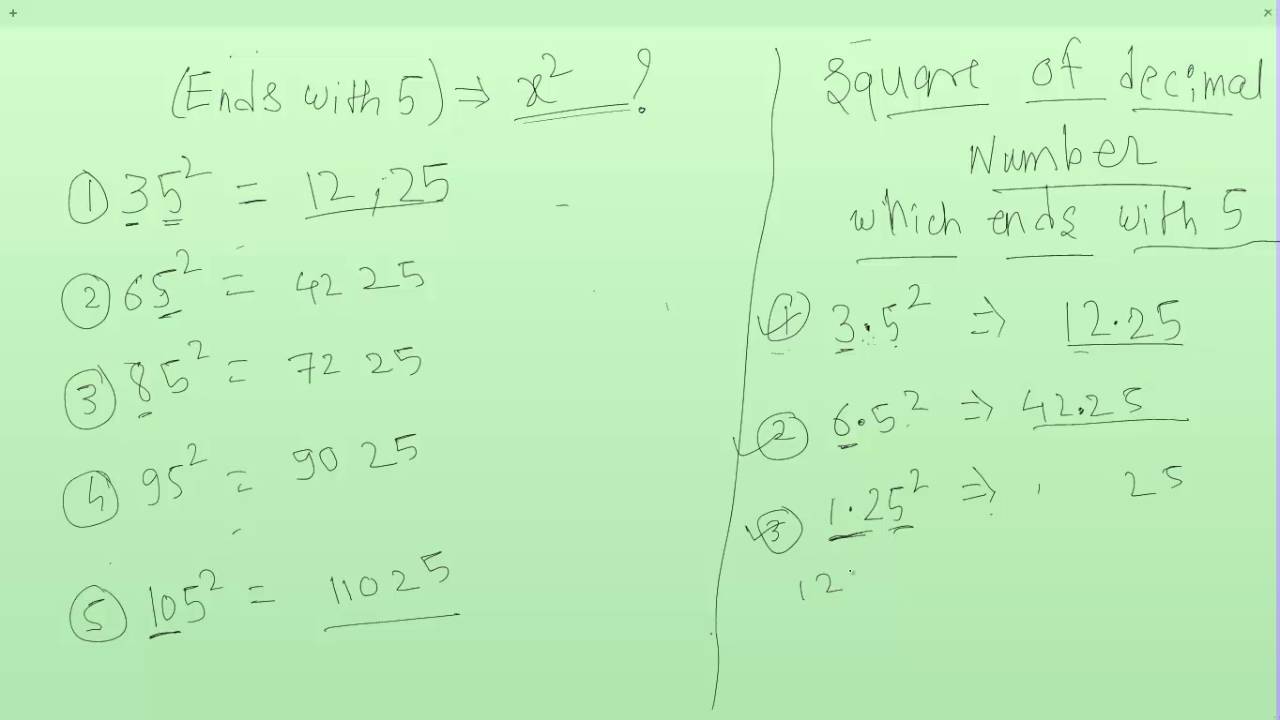 (Ends with 5) ⇒ x² ?
① 35² = 12,25
② 65² = 42 25
③ 85² = 72 25
④ 95² = 90 25
⑤ 105² = 11025
Square of decimal
Number
which ends with 5
① 3.5² ⇒ 12.25
② 6.5² ⇒ 42.25
③ 1.25² ⇒ 1 25
12